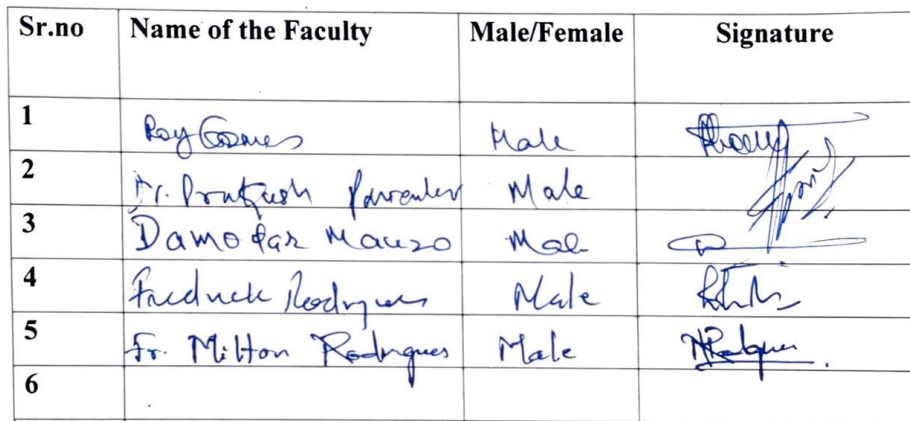 Sr.no Name of the Faculty Male/Female Signature
1 Roy Gomes Male
2 Dr. Prakash Parienkar Male
3 Damodar Mauzo Male
4 Fredrick Rodrigues Male
5 Fr. Milton Rodrigues Male
6